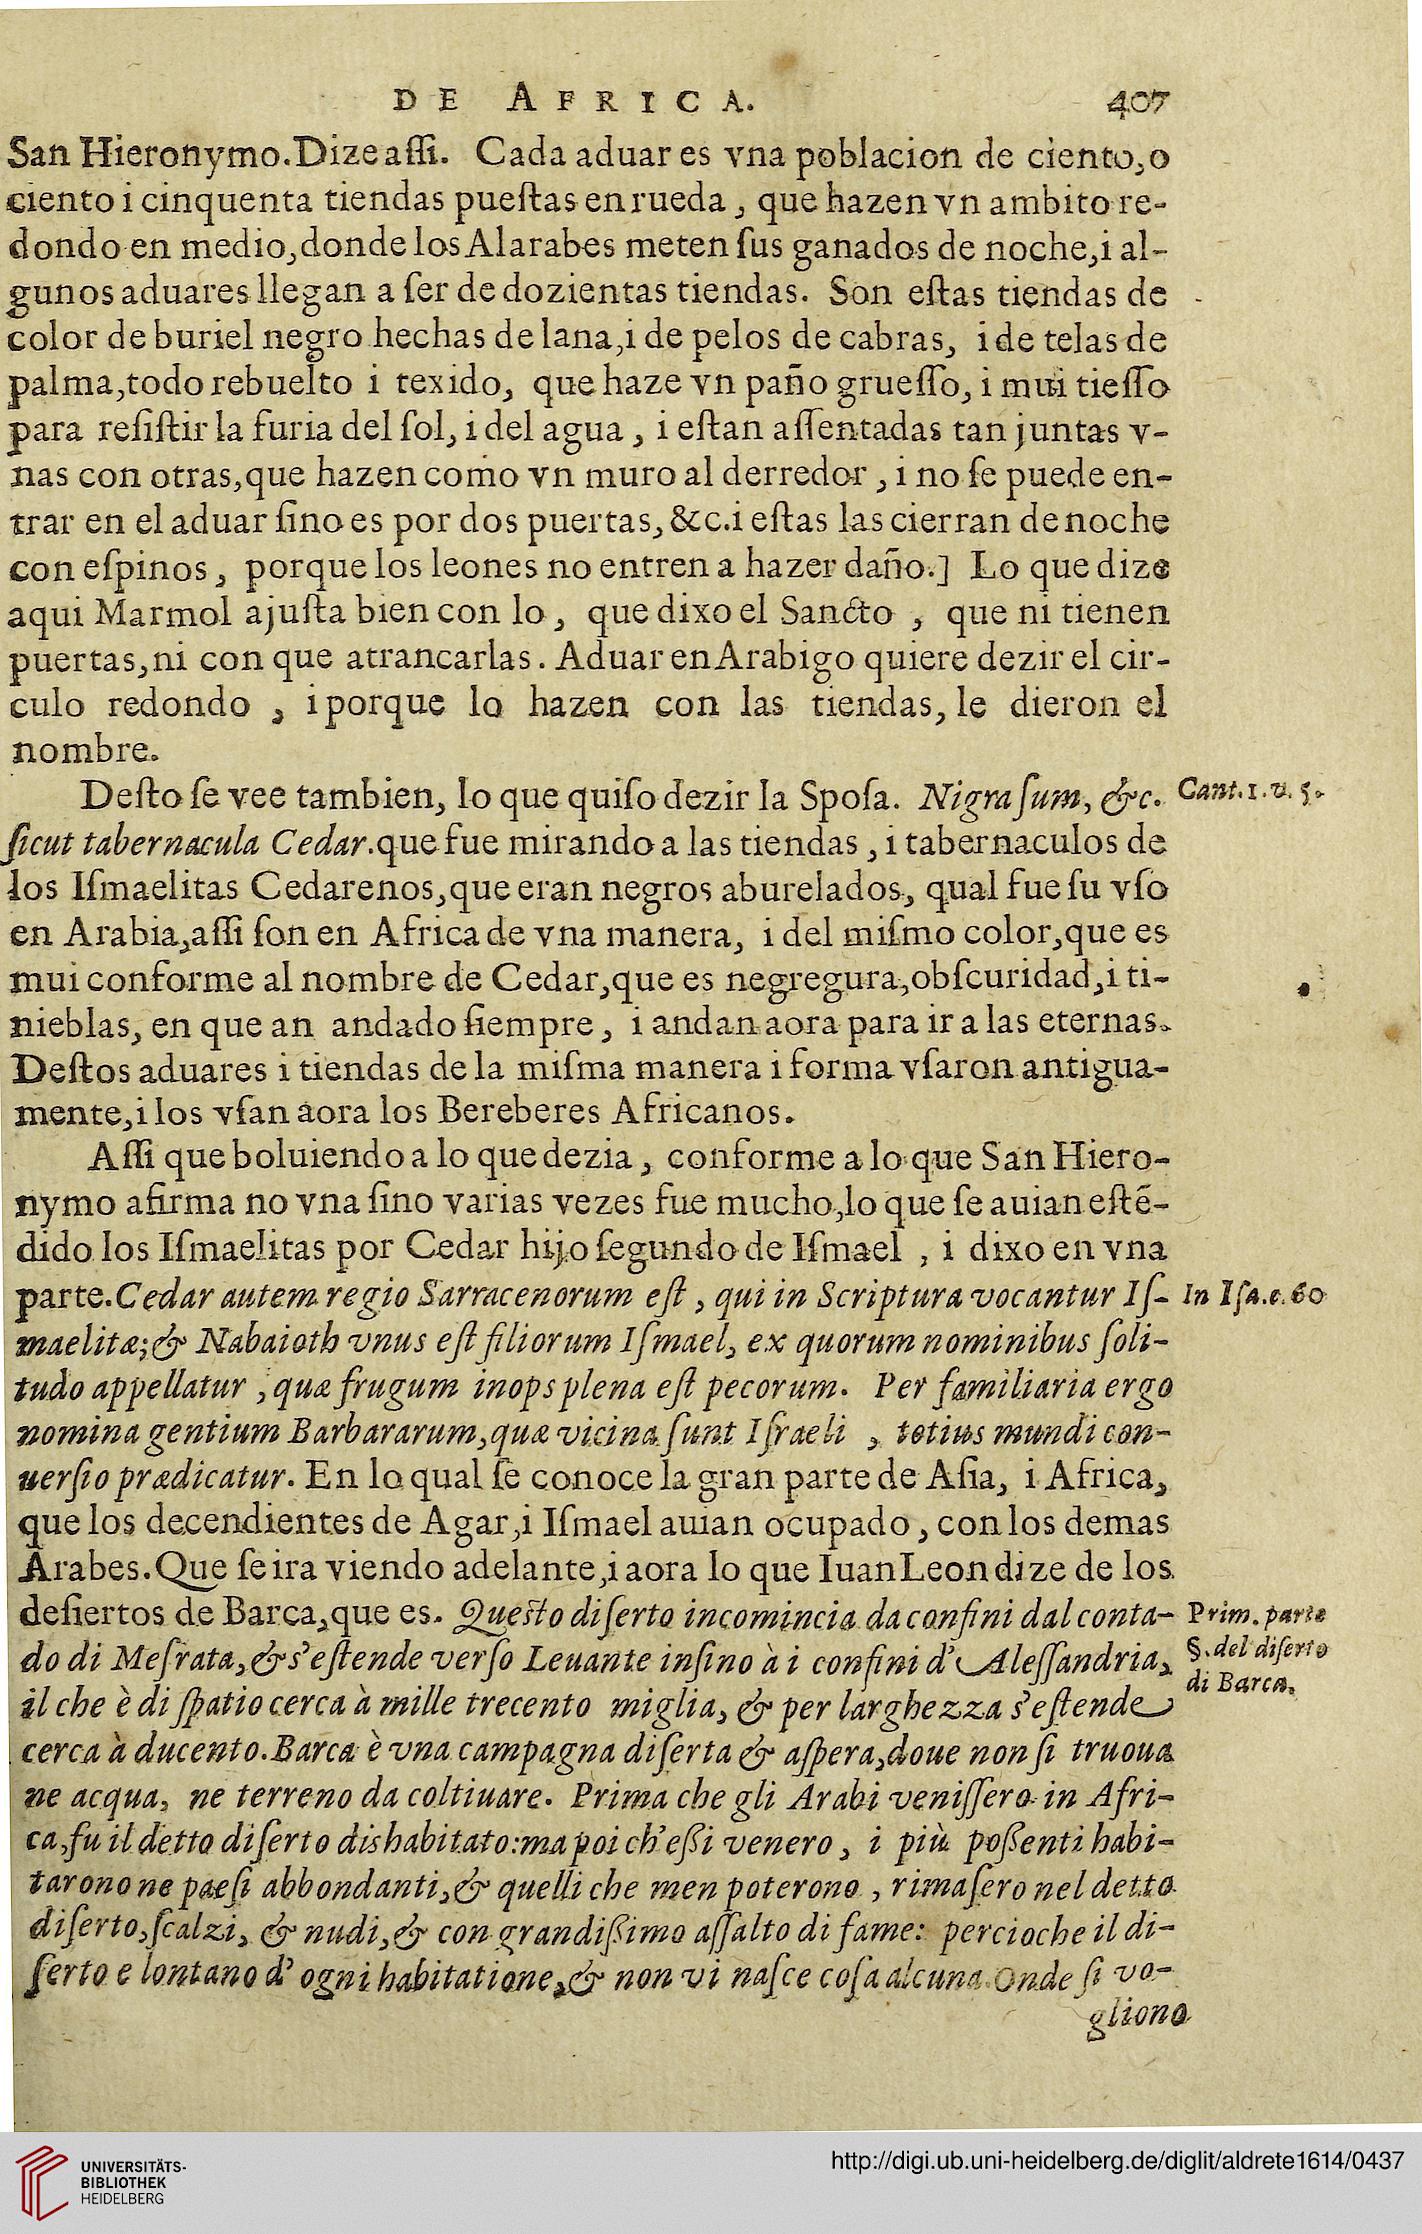 DE AFRICA. 407
San Hieronymo.Dize aſſi. Cada aduar es vna poblacion de ciento,o
ciento i cinquenta tiendas pueſtas en rueda , que hazen vn ambito re-
dondo en medio,donde los Alarabes meten ſus ganados de noche,i al-
gunos aduares llegan a ſer de dozientas tiendas. Son eſtas tiendas de
color de buriel negro hechas de lana,i de pelos de cabras, i de telas de
palma,todo rebuelto i texido, que haze vn paño grueſſo, i mui tieſſo
para reſiſtir la furia del ſol, i del agua , i eſtan aſſentadas tan juntas v-
nas con otras,que hazen como vn muro al derredor , i no ſe puede en-
trar en el aduar ſino es por dos puertas, &c.i eſtas las cierran de noche
con eſpinos , porque los leones no entren a hazer daño.] Lo que dize
aqui Marmol ajuſta bien con lo , que dixo el Sancto , que ni tienen
puertas,ni con que atrancarlas. Aduar en Arabigo quiere dezir el cir-
culo redondo , i porque lo hazen con las tiendas, le dieron el
nombre.
Deſto ſe vee tambien, lo que quiſo dezir la Spoſa. Nigra ſum, &c. Cant.1.v.5.
ſicut tabernacula Cedar.que fue mirando a las tiendas , i tabernaculos de
los Iſmaelitas Cedarenos,que eran negros aburelados, qual fue ſu vſo
en Arabia,aſſi ſon en Africa de vna manera, i del miſmo color,que es
mui conforme al nombre de Cedar,que es negregura,obſcuridad,i ti-
nieblas, en que an andado ſiempre , i andan aora para ir a las eternas.
Deſtos aduares i tiendas de la miſma manera i forma vſaron antigua-
mente,i los vſan aora los Bereberes Africanos.
Aſſi que boluiendo a lo que dezia , conforme a lo que San Hiero-
nymo afirma no vna ſino varias vezes fue mucho,lo que ſe auian eſtẽ-
dido los Iſmaelitas por Cedar hijo ſegundo de Iſmael , i dixo en vna
parte.Cedar autem regio Sarracenorum eſt , qui in Scriptura vocantur Iſ- In Iſa.c.60
maelitæ;& Nabaioth vnus eſt filiorum Iſmael, ex quorum nominibus ſoli-
tudo appellatur , quæ frugum inops plena eſt pecorum. Per familiaria ergo
nomina gentium Barbararum,quæ vicina ſunt Iſraeli , totius mundi con-
uerſio prædicatur. En lo qual ſe conoce la gran parte de Aſia, i Africa,
que los decendientes de Agar,i Iſmael auian ocupado , con los demas
Arabes.Que ſe ira viendo adelante,i aora lo que Iuan Leon dize de los
deſiertos de Barca,que es. Queſto diſerto incomincia da confini dal conta- Prim. parte
do di Meſrata,& s'eſtende verſo Leuante inſino à i confini d'Aleſſandria, §.del diſerto
il che è di ſpatio cerca à mille trecento miglia, & per larghezza s'eſtende di Barca.
cerca à ducento.Barca è vna campagna diſerta & aſpera,doue non ſi truoua
ne acqua, ne terreno da coltiuare. Prima che gli Arabi veniſſero in Afri-
ca,fu il detto diſerto dishabitato:ma poi ch'eßi venero , i più poßenti habi-
tarono ne paeſi abbondanti,& quelli che men poterono , rimaſero nel detto
diſerto,ſcalzi, & nudi,& con grandißimo aſſalto di fame: percioche il di-
ſerto e lontano d' ogni habitatione,& non vi naſce coſa alcuna.Onde ſi vo-
gliono
UNIVERSITÄTS-
BIBLIOTHEK
HEIDELBERG
http://digi.ub.uni-heidelberg.de/diglit/aldrete1614/0437